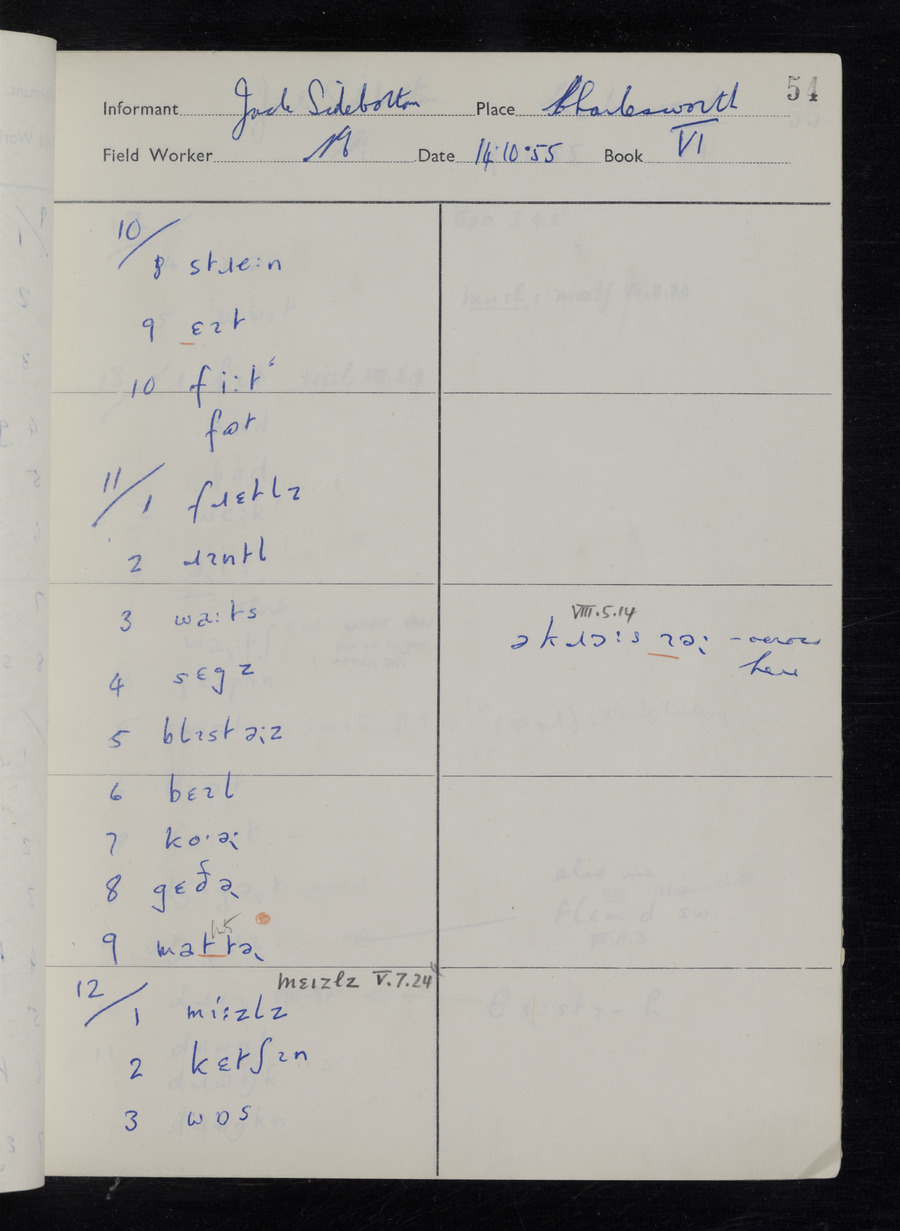 54
Informant Jack Sidebottom Place Charlesworth
Field Worker Date 14·10·55 Book VI
10/
8 stɹeːn
9 ɛɪt
10 fiːt
fɷt
11/
1 fɹɛtlz
2 ɹɪntl
3 waːts
4 sɛgz
5 blɪstəɻz
6 bɛɪl
7 kɒˑəɻ
8 gɛðəɻ
9 matɪəɻ
12/
mɛɪzlz V.7.24
1 miːzlz
2 kɛtʃɪn
3 wɒs
VIII.5.14
əkɹɔːs ɪəɻ - across
here